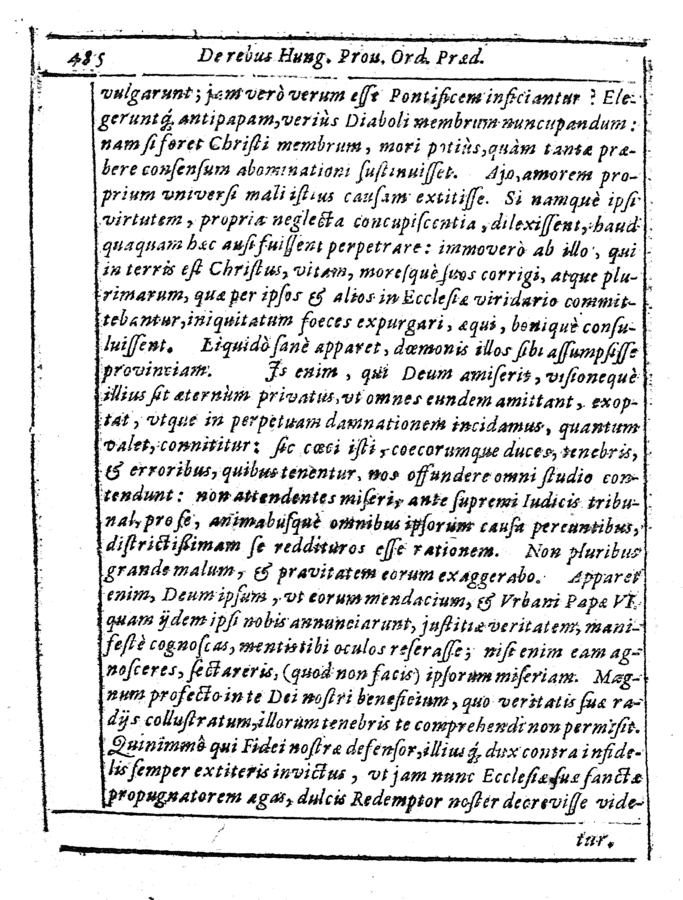 485 De rebus Hung. Prou. Ord. Præd.
vulgarunt; jam verò verum eſſe Pontificem inficiantur? Ele-
gerunt�q́; antipapam, veriùs Diaboli membrum nuncupandum:
nam ſi foret Chriſti membrum, mori potiùs, quàm tantæ præ-
bere conſenſum abominationi ſuſtinuiſſet. Ajo, amorem pro-
prium vniverſi mali iſtius cauſam extitiſſe. Si namquè ipſi
virtutem, propriæ neglecta concupiſcentia, dilexiſſent, haud-
quaquam hæc auſi fuiſſent perpetrare: immoverò ab illo, qui
in terris eſt Chriſtus, vitam, moreſquè ſuos corrigi, atque plu-
rimarum, quæ per ipſos & alios in Eccleſiæ viridario commit-
tebantur, iniquitatum foeces expurgari, æqui, boniquè conſu-
luiſſent. Liquidò ſanè apparet, dæmonis illos ſibi aſſumpſiſſe
provinciam. Is enim, qui Deum amiſerit, viſionequè
illius ſit æternùm privatus, vt omnes eundem amittant, exop-
tat, vtque in perpetuam damnationem incidamus, quantum
valet, connititur: ſic cœci iſti, coecorumque duces, tenebris,
& erroribus, quibus tenentur, nos offundere omni ſtudio con-
tendunt: non attendentes miſeri, ante ſupremi Iudicis tribu-
nal, pro ſe, animabuſquè omnibus ipſorum cauſa pereuntibus,
diſtrictißimam ſe reddituros eſſe rationem. Non pluribus
grande malum, & pravitatem eorum exaggerabo. Apparet
enim, Deum ipſum, vt eorum mendacium, & Vrbani Papæ VI.
quam ijdem ipſi nobis annunciarunt, juſtitiæ veritatem, mani-
feſtè cognoſcas, mentis tibi oculos reſeraſſe; niſi enim eam ag-
noſceres, ſectareris, (quod non facis) ipſorum miſeriam. Mag-
num profecto in te Dei noſtri beneficium, quo veritatis ſuæ ra-
dijs colluſtratum, illorum tenebris te comprehendi non permiſit.
Quinimmò qui Fidei noſtræ defenſor, illius q́; dux contra infide-
lis ſemper extiteris invictus, vt jam nunc Eccleſiæ ſuæ ſanctæ
propugnatorem agas, dulcis Redemptor noſter decreviſſe vide-
tur.